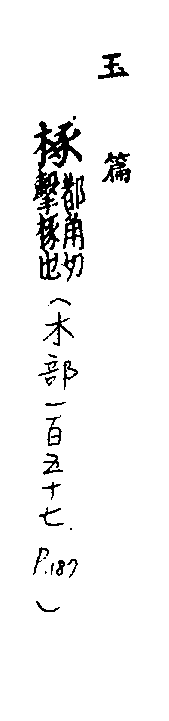 玉篇
椓都角切擊椓也(木部一百五十七.P.187)